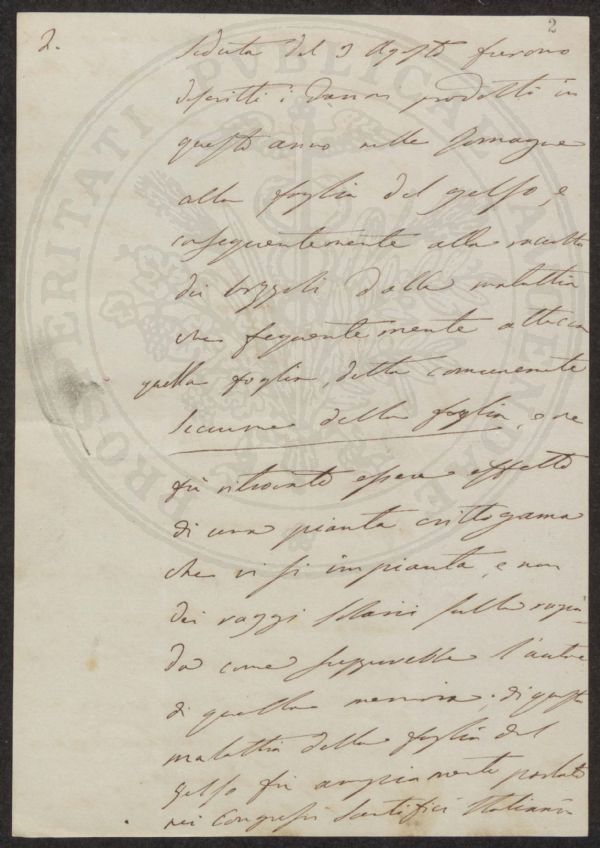 2.
2
seduta del 3 Agosto furono
descritti i danni prodotti in
questo anno nelle Romagne
alla foglia del gelso, e
conseguentemente alla raccolta
dei bozzoli dalla malattia
che frequentemente attacca
quella foglia, detta comunemente
della foglia, e ne
fù ritrovato essere effetto
di una pianta crittogama
che vi si impianta, e non
dei raggi solari sulla rugia-
da come l'autore
di quella memoria; di questa
malattia della foglia del
gelso fù ampiamente parlato
nei Congressi Scientifici Italiani
PROSPERITATI PUBLICAE AUGENDAE